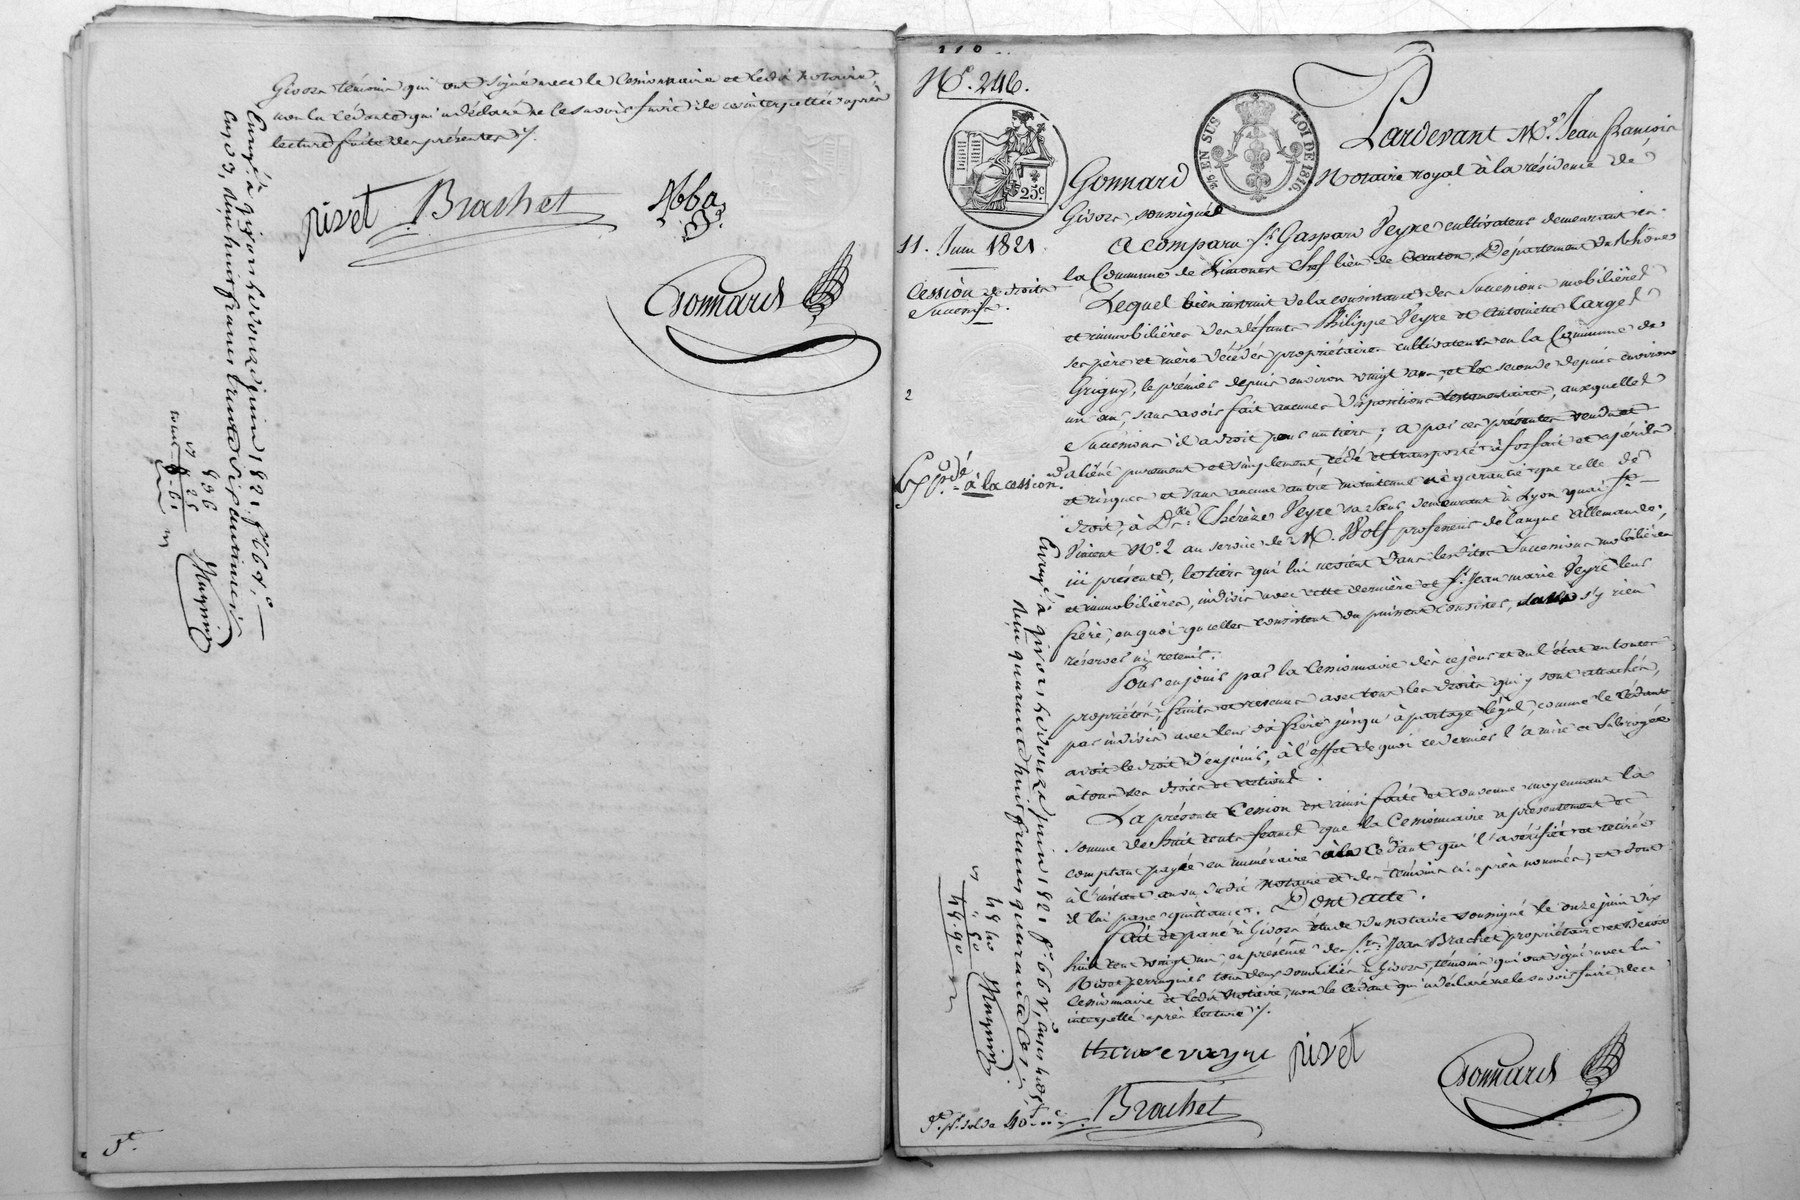 Givors témoins qui ont signé avec le Cessionnaire et ledit Notaire,
non le Cédant qui a déclaré ne le savoir faire de ce interpellé après
lecture faite des présentes ./.
pivet Brachet Abba
Gonnard
Enregé à givors le douze juin 1821 fo 66 vo,
reçu quatre francs trente six centimes
4 36
5e.
No. 246.
25c.
25c EN SUS LOI DE 1816.
11. Juin 1821
Cession de droits
Successifs.
2
Expédé
à la cessionre.
Pardevant Me. Jean françois
Gonnard Notaire royal à la résidence de
Givors, soussigné
A comparu Sr. Gaspard Veyre cultivateur demeurant en
la Commune de Limonest Chef lieu de Canton, Département du Rhône
Lequel bien instruit de la consistance des Successions mobilières
et immobilières des défunts Philippe Veyre et Antoinette Targe
ses père et mère décédés propriétaires cultivateurs en la Commune de
Grigny, le premier depuis environ vingt ans, et la seconde depuis environ
un an, sans avoir fait aucunes dispositions testamentaires, auxquelles
Successions il a droit pour un tiers; a par ces présentes vendu et
aliéné purement et simplement cédé et transporté à forfait et à périls
et risques et sans aucune autre maintenue ni garantie que celle de
droit, à Dlle. Thérèse Veyre sa sœur demeurant à Lyon quai St.
Vincent No. 2 au service de M. Wolf professeur de langue allemande,
ici présente, le tiers qui lui revient dans lesdites Successions mobilières
et immobilières, indivis avec cette dernière et Sr. Jean marie Veyre leur
frère, en quoi qu'elles consistent ou puissent consister, sans s'y rien
réserver ni retenir.
Pour en jouir par la Cessionnaire dès ce jour et en l'état en toutes
propriétés, fruits et revenus avec tous les droits qui y sont attachés,
par indivis avec leur dit frère jusqu'à partage légal, comme le Cédant
avoit le droit d'en jouir, à l'effet de quoi ce dernier l'a mise et subrogée
à tous ses droits et actions.
La présente Cession est ainsi faite et convenue moyennant la
somme de huit cents francs que la Cessionnaire a présentement et
comptant payée en numéraire au Cédant qui l'a vérifiée et retirée
à l'instant au vu dudit Notaire et des témoins ci après nommés, et dont
il lui passe quittance. Dont acte.
Fait et passé à Givors étude du notaire soussigné le onze juin dix
huit cent vingt un, en présence des Srs. Jean Brachet propriétaire et
Pivet perruquier tous deux domiciliés à Givors, témoins qui ont signé avec la
Cessionnaire et ledit Notaire, non le Cédant qui a déclaré ne le savoir faire de ce
interpellé après lecture ./.
therese veyre pivet
Gonnard
Brachet
Enregé à givors le douze juin 1821 fo 66 vo,
reçu quarante huit francs quarante
44 40
4 50
48.90